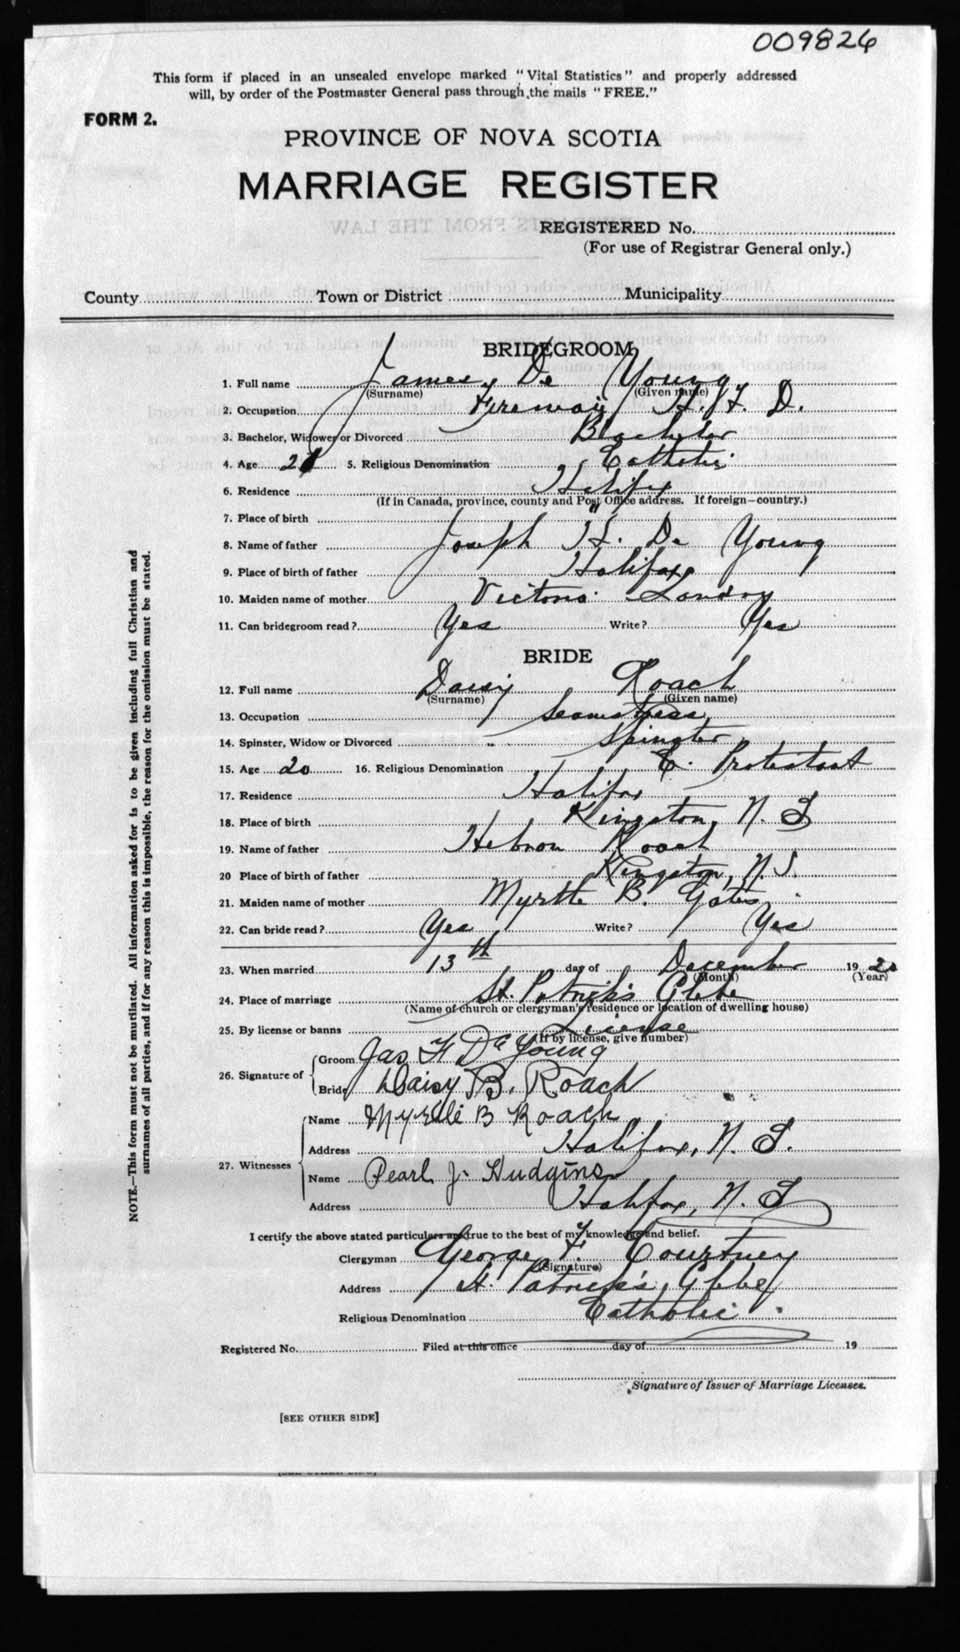 009826
This form if placed in an unsealed envelope marked "Vital Statistics" and properly addressed
will, by order of the Postmaster General pass through the mails "FREE."
FORM 2.
PROVINCE OF NOVA SCOTIA
MARRIAGE REGISTER
REGISTERED No.
(For use of Registrar General only.)
County Town or District Municipality
BRIDEGROOM
1. Full name James De Young
(Surname) (Given name)
2. Occupation Fireman H. F. D.
3. Bachelor, Widower or Divorced Bachelor
4. Age 21 5. Religious Denomination Catholic
6. Residence Halifax
(If in Canada, province, county and Post Office address. If foreign—country.)
7. Place of birth "
8. Name of father Joseph H. De Young
9. Place of birth of father Halifax
10. Maiden name of mother Victoria Landry
11. Can bridegroom read? Yes Write? Yes
BRIDE
12. Full name Daisy Roach
(Surname) (Given name)
13. Occupation Seamstress
14. Spinster, Widow or Divorced Spinster
15. Age 20 16. Religious Denomination C. Protestant
17. Residence Halifax
18. Place of birth Kingston, N. S
19. Name of father Hebron Roach
20 Place of birth of father Kingston, N.S.
21. Maiden name of mother Myrtle B. Gates
22. Can bride read? Yes Write? Yes
23. When married 13th day of December 1920
(Month) (Year)
24. Place of marriage St. Patrick's Glebe
(Name of church or clergyman's residence or location of dwelling house)
25. By license or banns License
(If by license, give number)
26. Signature of Groom Jas H De Young
Bride Daisy B. Roach
27. Witnesses Name Myrtle B Roach
Address Halifax, N. S.
Name Pearl J. Hudgins
Address Halifax, N. S
I certify the above stated particulars are true to the best of my knowledge and belief.
Clergyman George F. Courtney
(Signature)
Address St. Patrick's Glebe
Religious Denomination Catholic
Registered No. Filed at this office day of 19
Signature of Issuer of Marriage Licenses.
[SEE OTHER SIDE]
NOTE.—This form must not be mutilated. All information asked for is to be given including full Christian and
surnames of all parties, and if for any reason this is impossible, the reason for the omission must be stated.